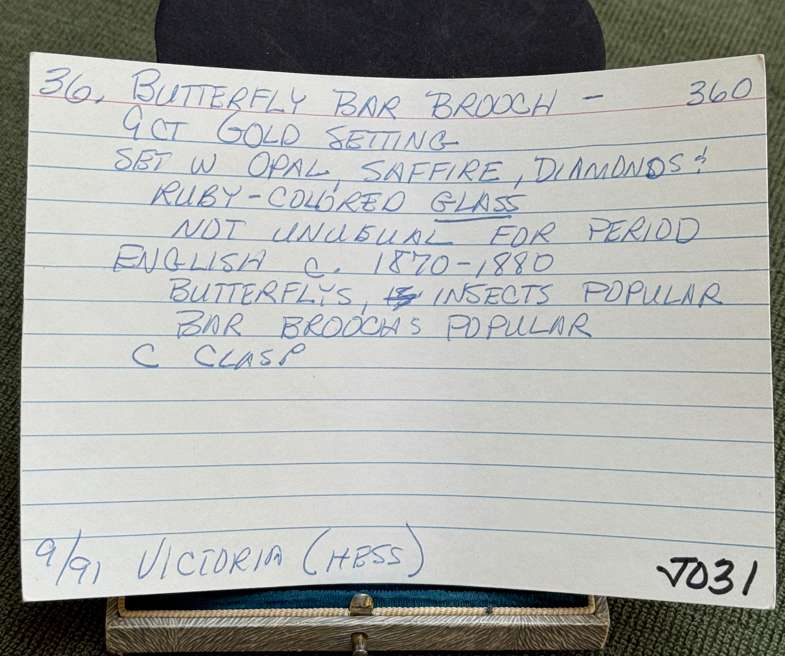 36. BUTTERFLY BAR BROOCH - 360
9CT GOLD SETTING
SET W OPAL, SAFFIRE, DIAMONDS &
RUBY-COLORED GLASS
NOT UNUSUAL FOR PERIOD
ENGLISH C. 1870-1880
BUTTERFLYS, INSECTS POPULAR
BAR BROOCHS POPULAR
C CLASP
9/91 VICTORIA (HESS)
J031